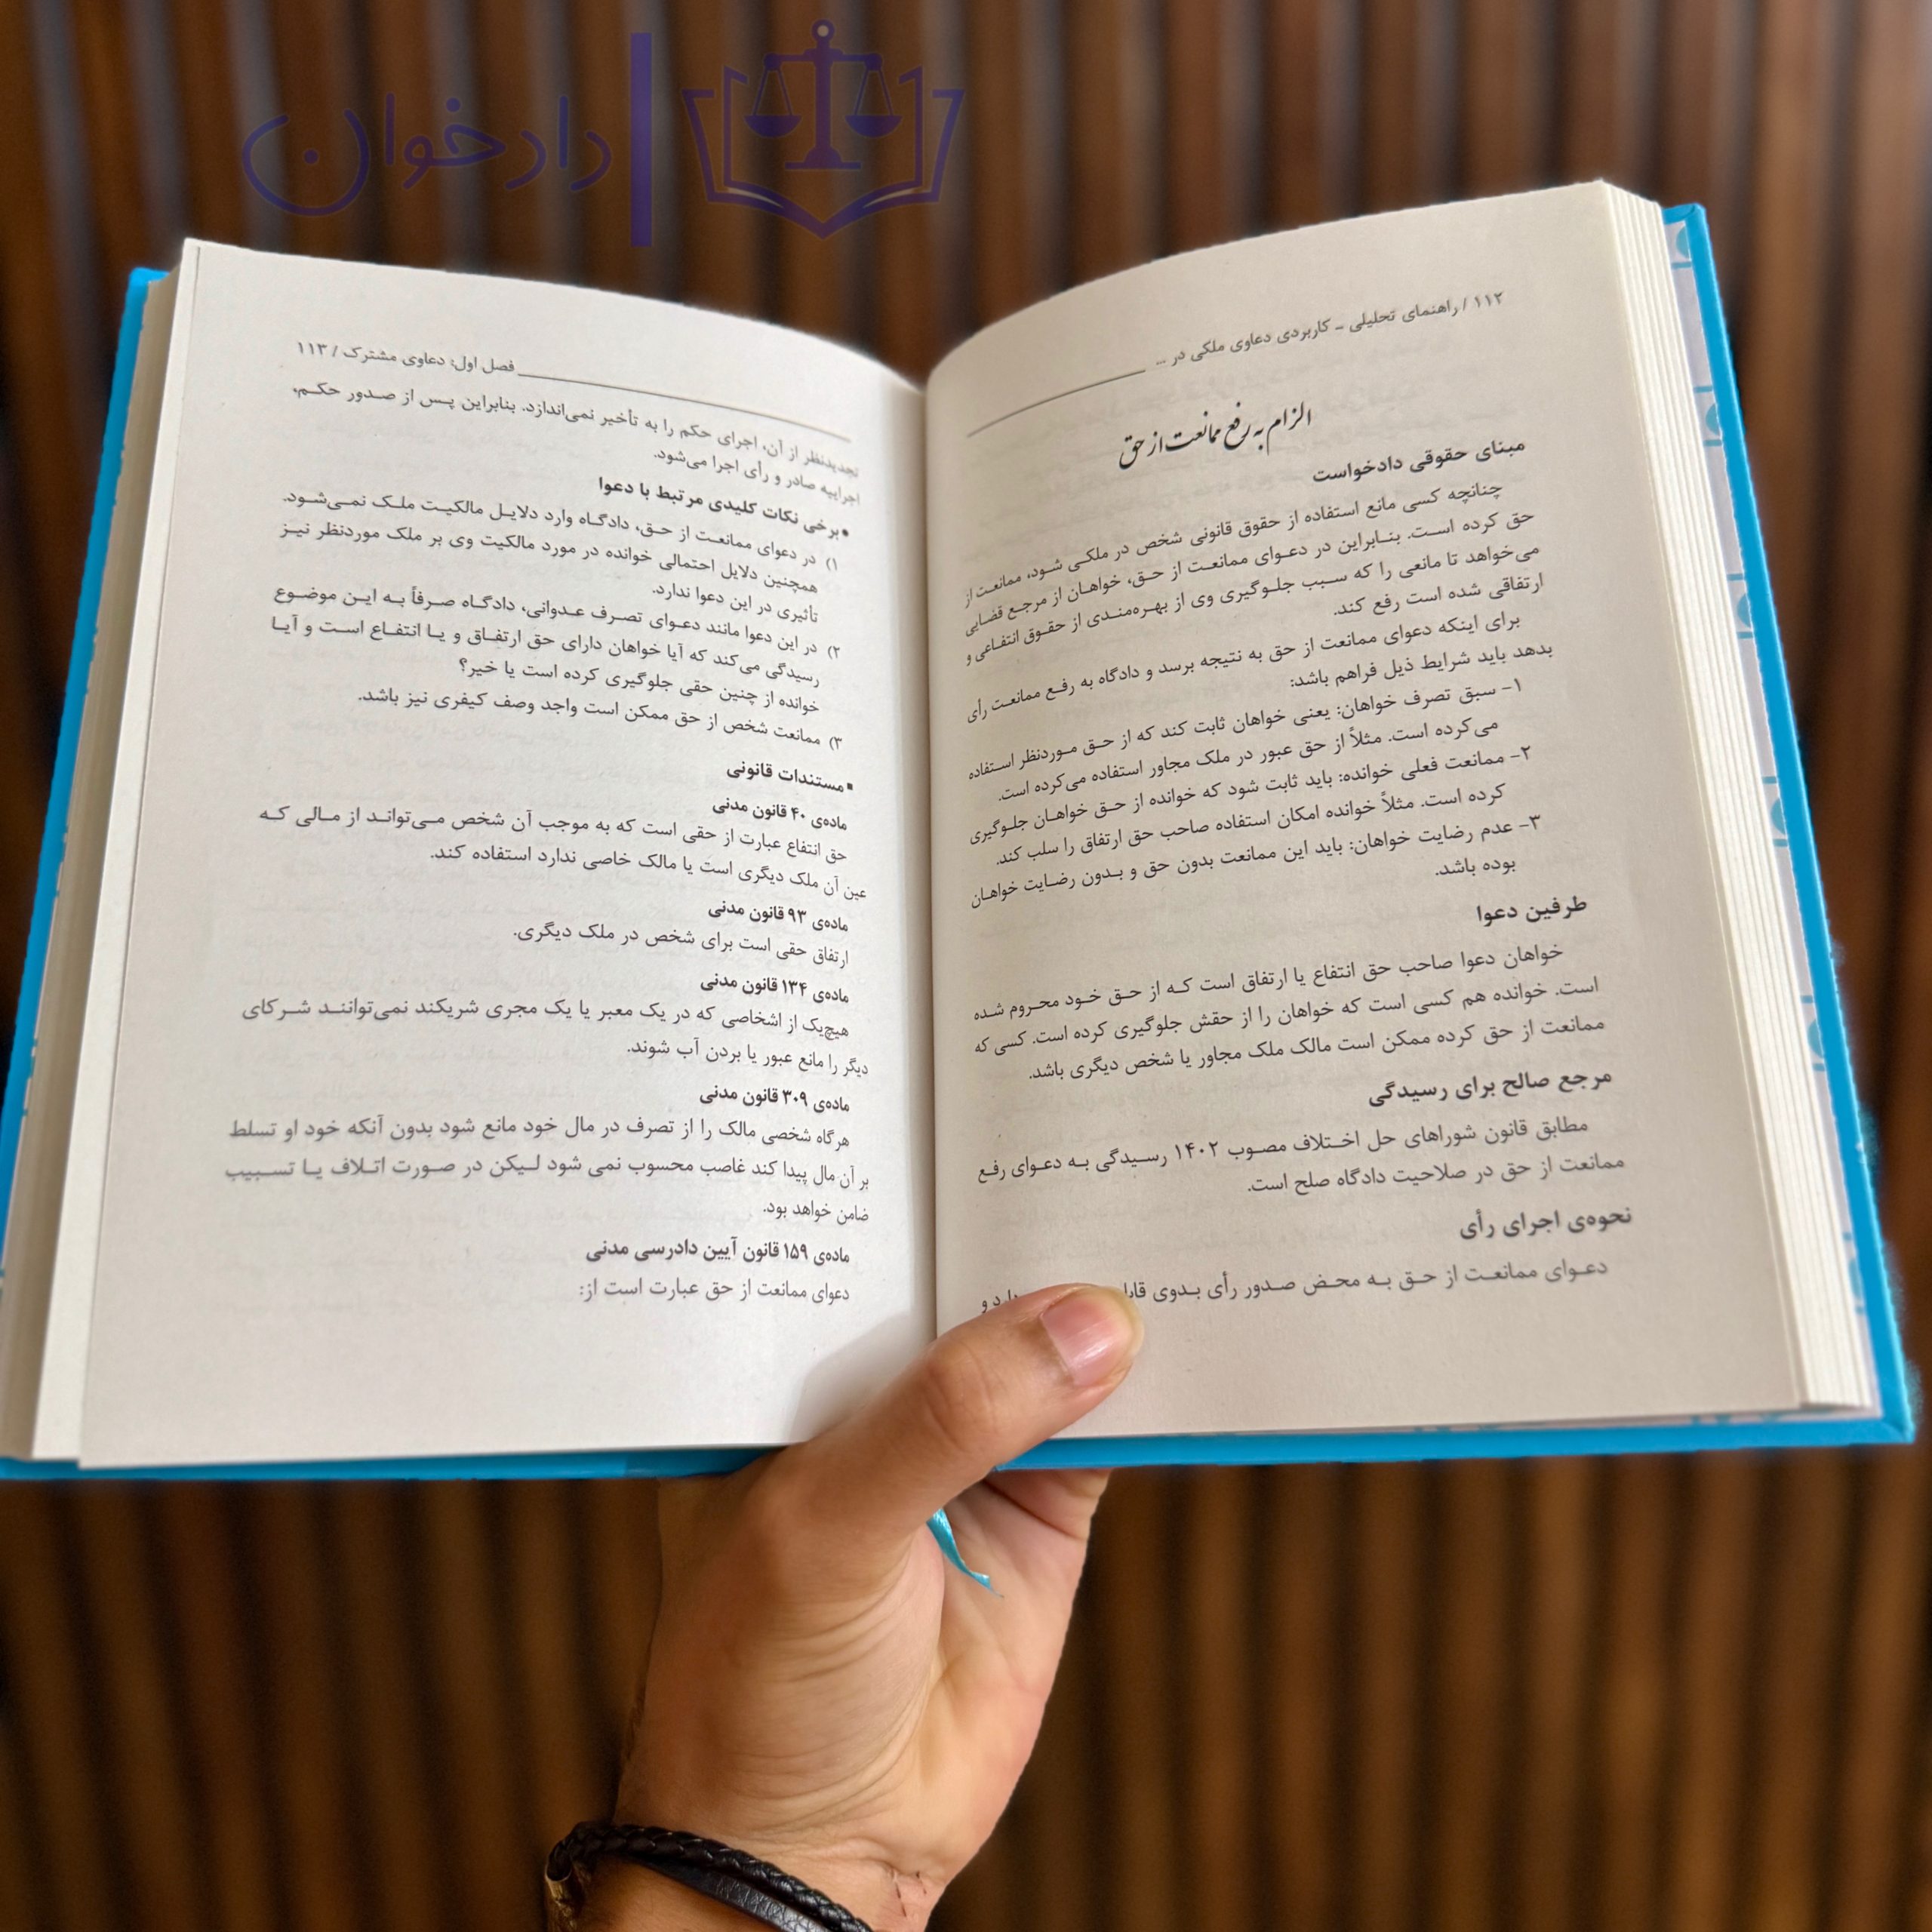 دادخوان
۱۱۲ / راهنمای تحلیلی - کاربردی دعاوی ملکی در ...
الزام به رفع ممانعت از حق
مبنای حقوقی دادخواست
چنانچه کسی مانع استفاده از حقوق قانونی شخص در ملکی شود، ممانعت از
حق کرده است. بنابراین در دعوای ممانعت از حق، خواهان از مرجع قضایی
می‌خواهد تا مانعی را که سبب جلوگیری وی از بهره‌مندی از حقوق انتفاعی و
ارتفاقی شده است رفع کند.
برای اینکه دعوای ممانعت از حق به نتیجه برسد و دادگاه به رفع ممانعت رأی
بدهد باید شرایط ذیل فراهم باشد:
۱- سبق تصرف خواهان: یعنی خواهان ثابت کند که از حق موردنظر استفاده
می‌کرده است. مثلاً از حق عبور در ملک مجاور استفاده می‌کرده است.
۲- ممانعت فعلی خوانده: باید ثابت شود که خوانده از حق خواهان جلوگیری
کرده است. مثلاً خوانده امکان استفاده صاحب حق ارتفاق را سلب کند.
۳- عدم رضایت خواهان: باید این ممانعت بدون حق و بدون رضایت خواهان
بوده باشد.
طرفین دعوا
خواهان دعوا صاحب حق انتفاع یا ارتفاق است که از حق خود محروم شده
است. خوانده هم کسی است که خواهان را از حقش جلوگیری کرده است. کسی که
ممانعت از حق کرده ممکن است مالک ملک مجاور یا شخص دیگری باشد.
مرجع صالح برای رسیدگی
مطابق قانون شوراهای حل اختلاف مصوب ۱۴۰۲ رسیدگی به دعوای رفع
ممانعت از حق در صلاحیت دادگاه صلح است.
نحوه‌ی اجرای رأی
دعوای ممانعت از حق به محض صدور رأی بدوی و
فصل اول: دعاوی مشترک / ۱۱۳
تجدیدنظر از آن، اجرای حکم را به تأخیر نمی‌اندازد. بنابراین پس از صدور حکم،
اجراییه صادر و رأی اجرا می‌شود.
▪برخی نکات کلیدی مرتبط با دعوا
۱) در دعوای ممانعت از حق، دادگاه وارد دلایل مالکیت ملک نمی‌شود.
همچنین دلایل احتمالی خوانده در مورد مالکیت وی بر ملک موردنظر نیز
تأثیری در این دعوا ندارد.
۲) در این دعوا مانند دعوای تصرف عدوانی، دادگاه صرفاً به این موضوع
رسیدگی می‌کند که آیا خواهان دارای حق ارتفاق و یا انتفاع است و آیا
خوانده از چنین حقی جلوگیری کرده است یا خیر؟
۳) ممانعت شخص از حق ممکن است واجد وصف کیفری نیز باشد.
▪مستندات قانونی
ماده‌ی ۴۰ قانون مدنی
حق انتفاع عبارت از حقی است که به موجب آن شخص می‌تواند از مالی که
عین آن ملک دیگری است یا مالک خاصی ندارد استفاده کند.
ماده‌ی ۹۳ قانون مدنی
ارتفاق حقی است برای شخص در ملک دیگری.
ماده‌ی ۱۳۴ قانون مدنی
هیچ‌یک از اشخاصی که در یک معبر یا یک مجری شریکند نمی‌توانند شرکای
دیگر را مانع عبور یا بردن آب شوند.
ماده‌ی ۳۰۹ قانون مدنی
هرگاه شخصی مالک را از تصرف در مال خود مانع شود بدون آنکه خود او تسلط
بر آن مال پیدا کند غاصب محسوب نمی شود لیکن در صورت اتلاف یا تسبیب
ضامن خواهد بود.
ماده‌ی ۱۵۹ قانون آیین دادرسی مدنی
دعوای ممانعت از حق عبارت است از: